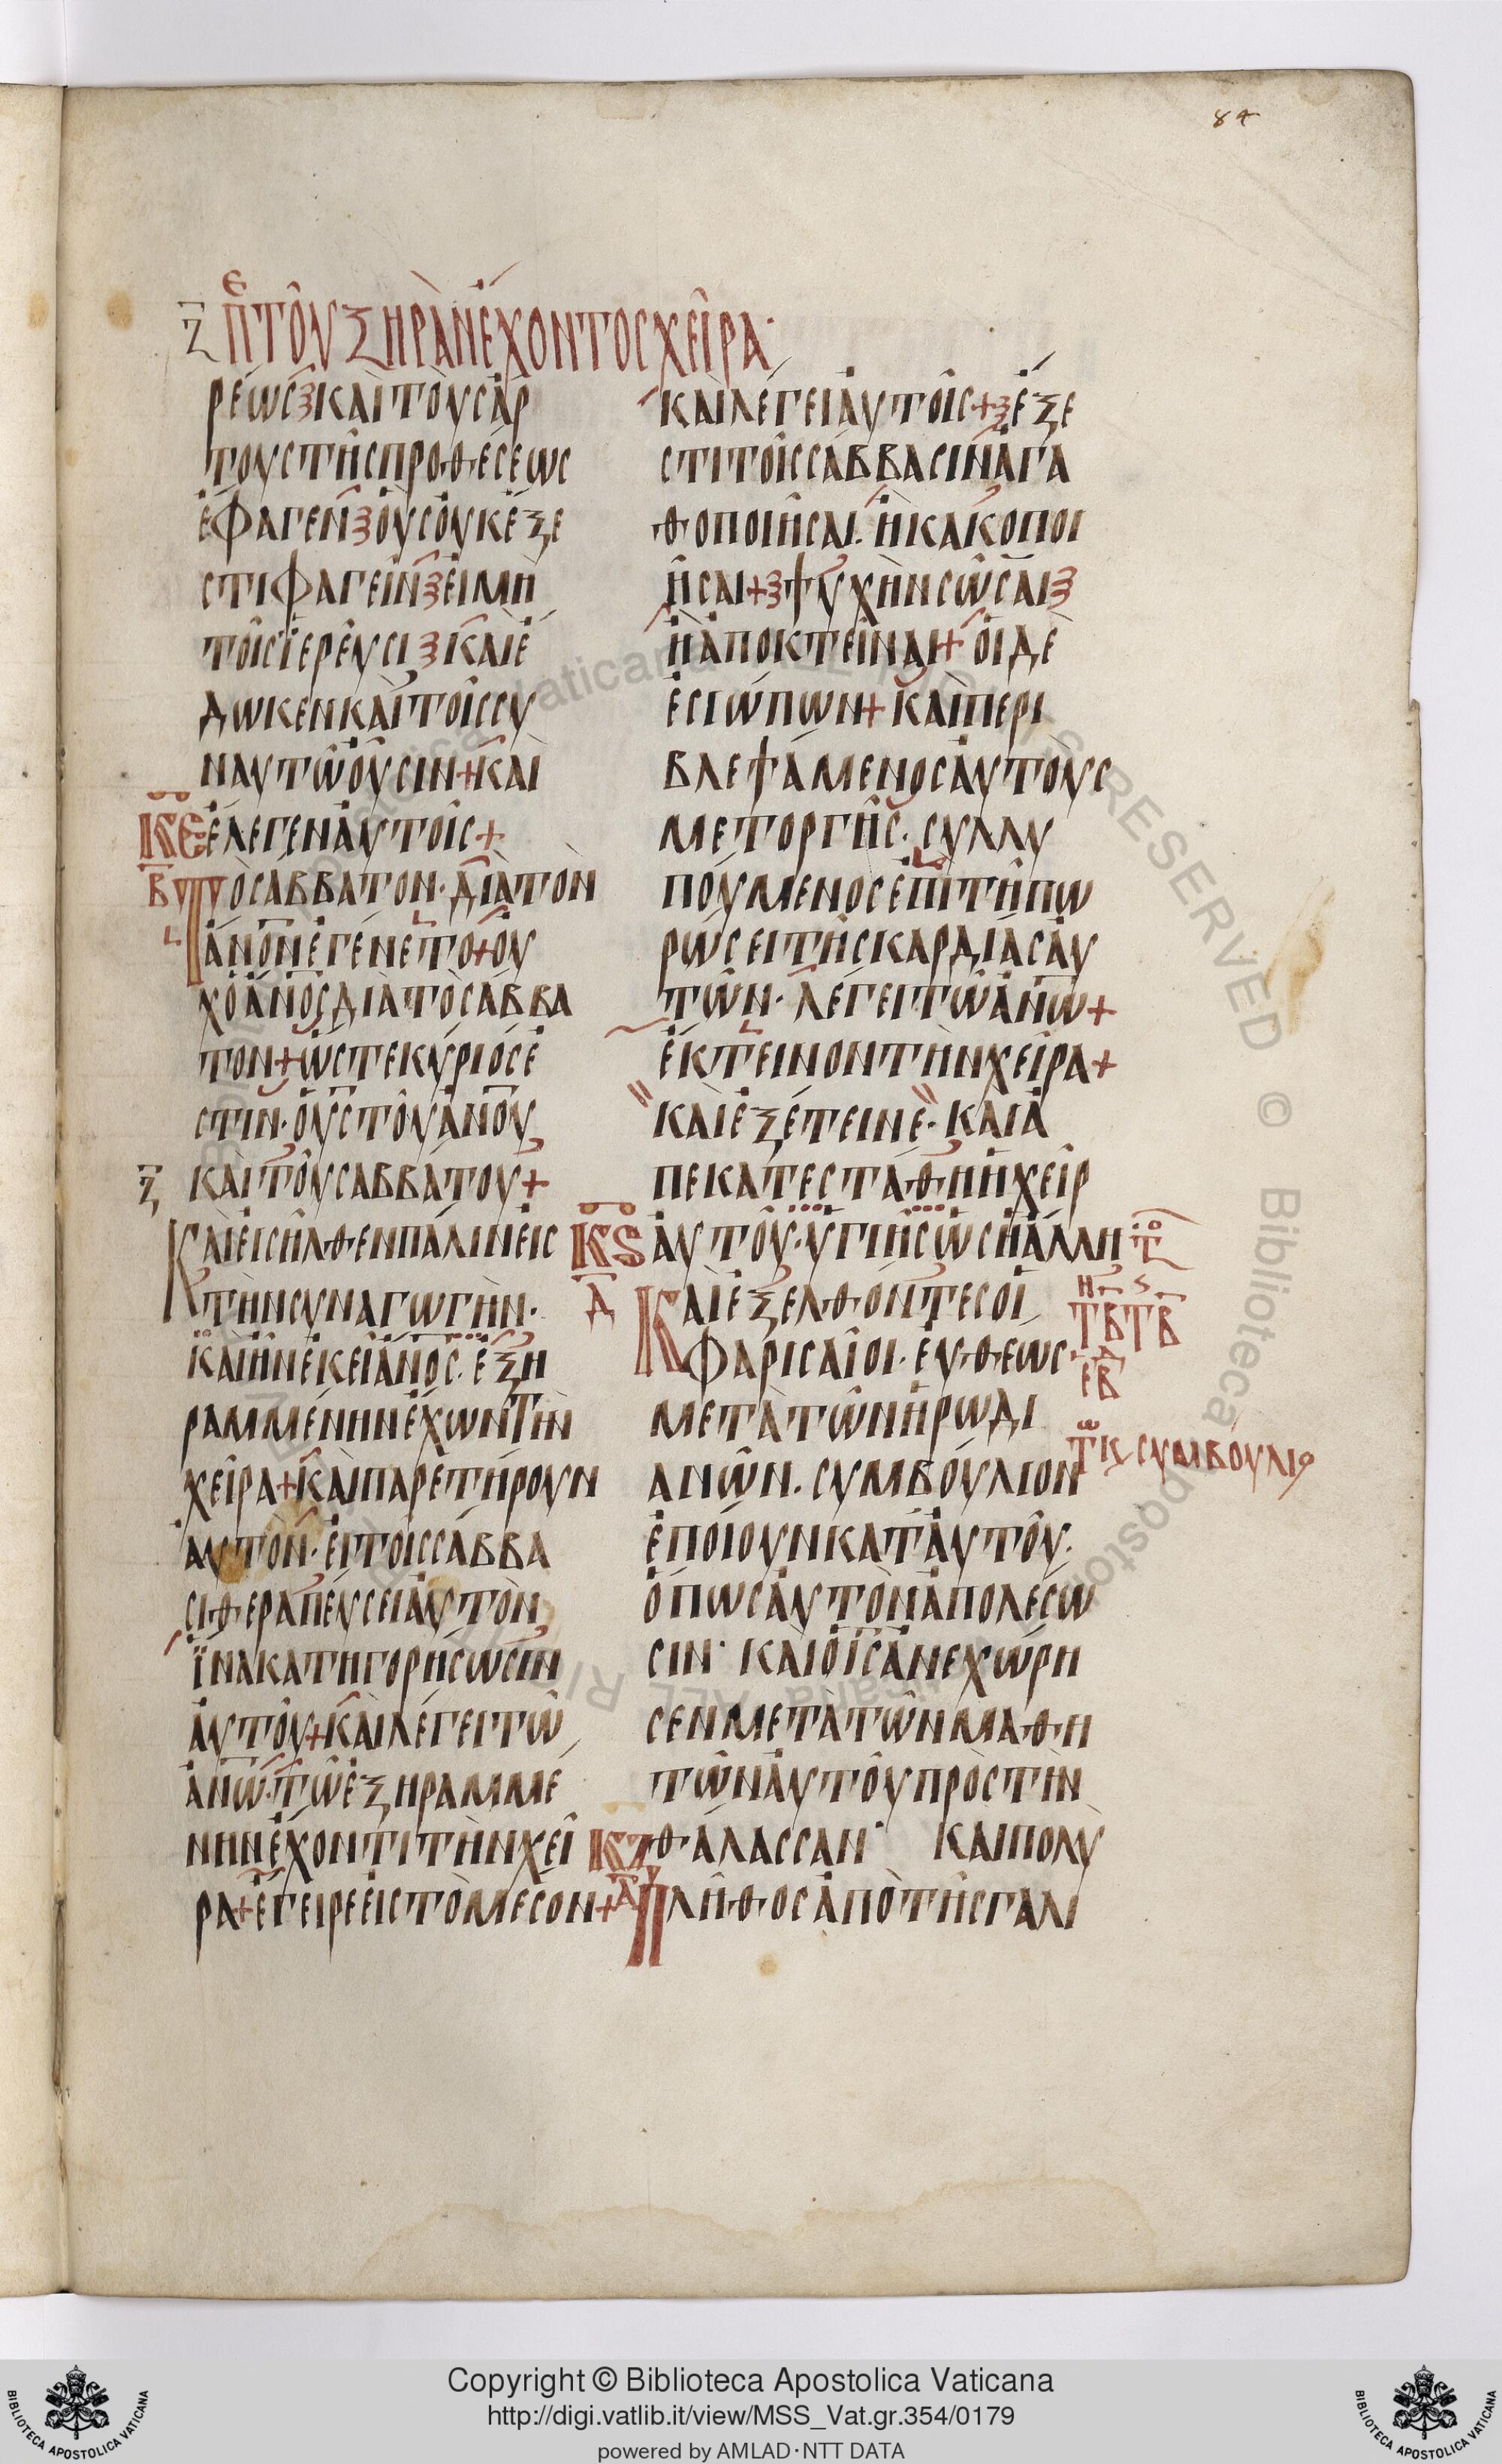 84
Ζ ΠΕ ΤΟΥ ΞΗΡΑΝ ΕΧΟΝΤΟΣ ΧΕΙΡΑ·
ΡΕΩΣ ΚΑΙ ΤΟΥΣ ΑΡ
ΤΟΥΣ ΤΗΣ ΠΡΟΘΕΣΕΩΣ
ΕΦΑΓΕΝ ΟΥΣ ΟΥΚ ΕΞΕ
ΣΤΙ ΦΑΓΕΙΝ ΕΙ ΜΗ
ΤΟΙΣ ΙΕΡΕΥΣΙ ΚΑΙ Ε
ΔΩΚΕΝ ΚΑΙ ΤΟΙΣ ΣΥ
Ν ΑΥΤΩ ΟΥΣΙΝ + ΚΑΙ
ΚΕ ΕΛΕΓΕΝ ΑΥΤΟΙΣ +
Β ΤΟ ΣΑΒΒΑΤΟΝ · ΔΙΑ ΤΟΝ
ΑΝΟΝ ΕΓΕΝΕΤΟ + ΟΥ
Χ Ο ΑΝΟΣ ΔΙΑ ΤΟ ΣΑΒΒΑ
ΤΟΝ + ΩΣΤΕ ΚΥΡΙΟΣ Ε
ΣΤΙΝ · Ο ΥΣ ΤΟΥ ΑΝΟΥ
Ζ ΚΑΙ ΤΟΥ ΣΑΒΒΑΤΟΥ +
ΚΑΙ ΕΙΣΗΛΘΕΝ ΠΑΛΙΝ ΕΙΣ
ΤΗΝ ΣΥΝΑΓΩΓΗΝ ·
ΚΑΙ ΗΝ ΕΚΕΙ ΑΝΟΣ · ΕΞΗ
ΡΑΜΜΕΝΗΝ ΕΧΩΝ ΤΗΝ
ΧΕΙΡΑ + ΚΑΙ ΠΑΡΕΤΗΡΟΥΝ
ΑΥΤΟΝ · ΕΙ ΤΟΙΣ ΣΑΒΒΑ
ΣΙ ΘΕΡΑΠΕΥΣΕΙ ΑΥΤΟΝ
ΪΝΑ ΚΑΤΗΓΟΡΗΣΩΣΙΝ
ΑΥΤΟΥ + ΚΑΙ ΛΕΓΕΙ ΤΩ
ΑΝΩ · ΤΩ ΕΞΗΡΑΜΜΕ
ΝΗΝ ΕΧΟΝΤΙ ΤΗΝ ΧΕΙ
ΡΑ + ΕΓΕΙΡΕ ΕΙΣ ΤΟ ΜΕΣΟΝ +
ΚΑΙ ΛΕΓΕΙ ΑΥΤΟΙΣ + ΕΞΕ
ΣΤΙ ΤΟΙΣ ΣΑΒΒΑΣΙΝ ΑΓΑ
ΘΟΠΟΙΗΣΑΙ · Η ΚΑΚΟΠΟΙ
ΗΣΑΙ + ΨΥΧΗΝ ΣΩΣΑΙ
Η ΑΠΟΚΤΕΙΝΑΙ + ΟΙ ΔΕ
ΕΣΙΩΠΩΝ + ΚΑΙ ΠΕΡΙ
ΒΛΕΨΑΜΕΝΟΣ ΑΥΤΟΥΣ
ΜΕΤ ΟΡΓΗΣ · ΣΥΛΛΥ
ΠΟΥΜΕΝΟΣ ΕΠΙ ΤΗ ΠΩ
ΡΩΣΕΙ ΤΗΣ ΚΑΡΔΙΑΣ ΑΥ
ΤΩΝ · ΛΕΓΕΙ ΤΩ ΑΝΩ +
ΕΚΤΕΙΝΟΝ ΤΗΝ ΧΕΙΡΑ +
ΚΑΙ ΕΞΕΤΕΙΝΕ · ΚΑΙ Α
ΠΕΚΑΤΕΣΤΑΘΗ Η ΧΕΙΡ
Κϛ ΑΥΤΟΥ · ΥΓΙΗΣ ΩΣ Η ΑΛΛΗ
Δ ΚΑΙ ΕΞΕΛΘΟΝΤΕΣ ΟΙ
ΦΑΡΙΣΑΙΟΙ · ΕΥΘΕΩΣ
ΜΕΤΑ ΤΩΝ ΗΡΩΔΙ
ΑΝΩΝ · ΣΥΜΒΟΥΛΙΟΝ
ΕΠΟΙΟΥΝ ΚΑΤ ΑΥΤΟΥ ·
ΟΠΩΣ ΑΥΤΟΝ ΑΠΟΛΕΣΩ
ΣΙΝ · ΚΑΙ Ο ΙΣ ΑΝΕΧΩΡΗ
ΣΕΝ ΜΕΤΑ ΤΩΝ ΜΑΘΗ
ΤΩΝ ΑΥΤΟΥ ΠΡΟΣ ΤΗΝ
ΚΖ ΘΑΛΑΣΣΑΝ · ΚΑΙ ΠΟΛΥ
Α ΠΛΗΘΟΣ ΑΠΟ ΤΗΣ ΓΑΛΙ
ΣΥΜΒΟΥΛΙΟ
Copyright © Biblioteca Apostolica Vaticana
http://digi.vatlib.it/view/MSS_Vat.gr.354/0179
powered by AMLAD · NTT DATA
BIBLIOTECA APOSTOLICA VATICANA
BIBLIOTECA APOSTOLICA VATICANA